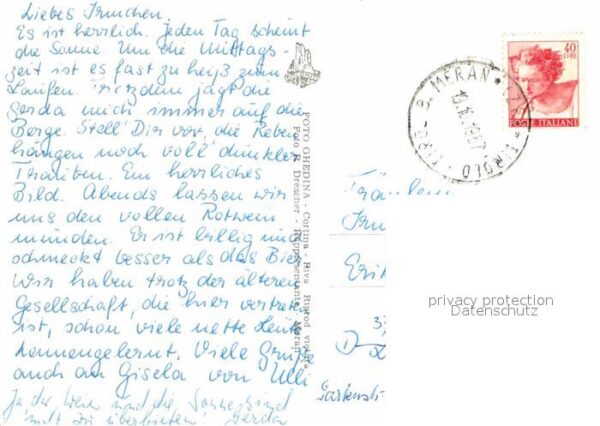 Liebes Irmchen.
Es ist herrlich. Jeden Tag scheint
die Sonne. Um die Mittags-
zeit ist es fast zu heiß zum
Laufen. Trotzdem jagt die
Gerda mich immer auf die
Berge. Stell' Dir vor, die Reben
hängen noch voll dunkler
Trauben. Ein herrliches
Bild. Abends lassen wir
uns den vollen Rotwein
munden. Er ist billig und
schmeckt besser als das Bier.
Wir haben trotz der älteren
Gesellschaft, die hier vertreten
ist, schon viele nette Leute
kennengelernt. Viele Grüße
auch an Gisela von Ulli
Ja der Wein und die Sonne sind
nicht zu überbieten! Gerda
FOTO GHEDINA - Cortina - Riva Riprod. vietata
Foto R. Drescher - Repräsentante - Meran
MERAN
TIROLO
40
LIRE
POSTE ITALIANE
Fräulein
Irm
Eri
privacy protection
Datenschutz
D-
Gartenst